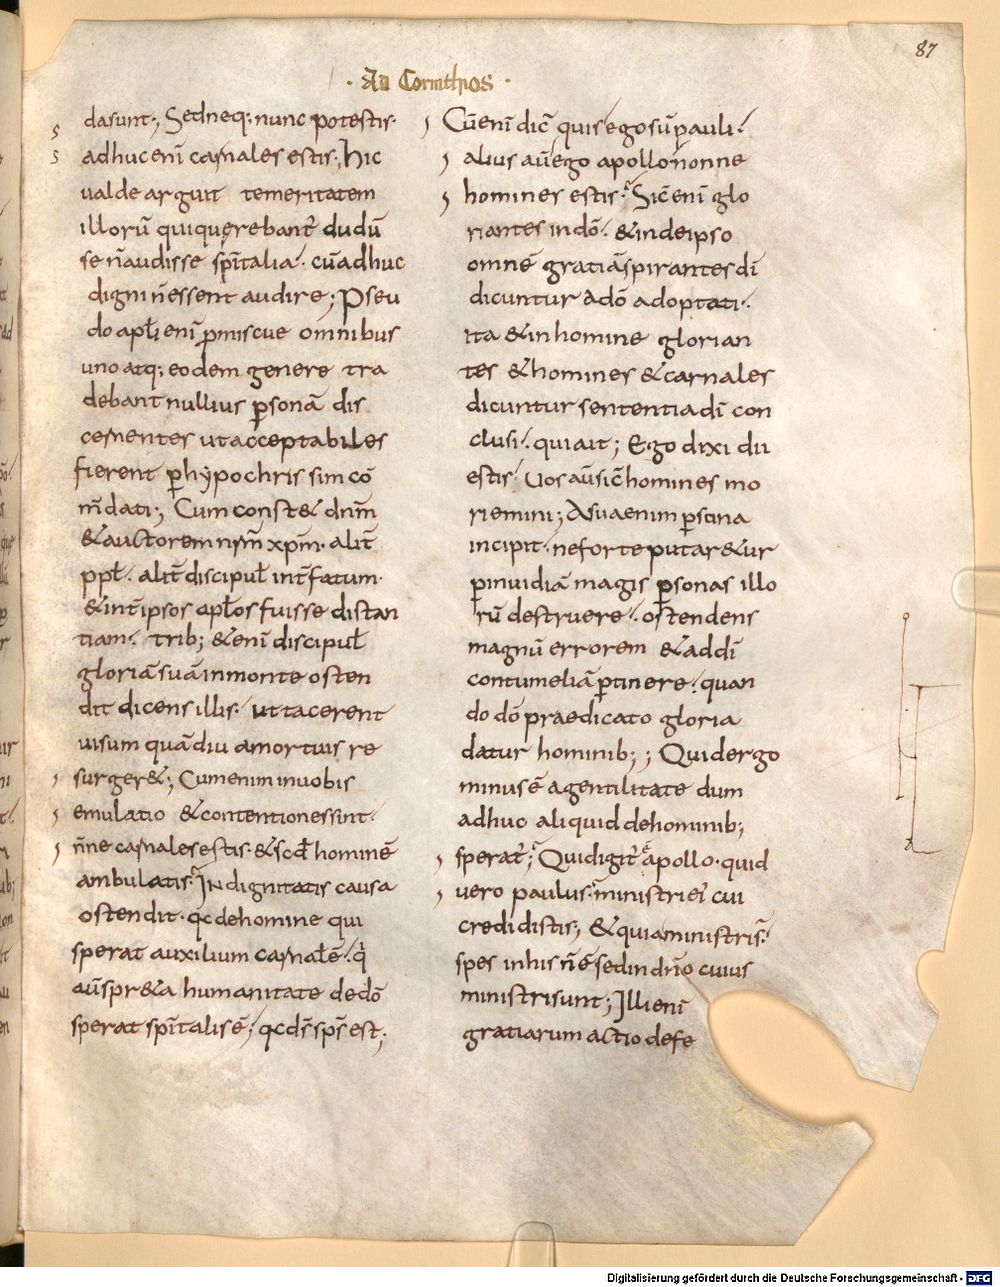 87
· Ad Corinthios ·
dasunt; Sedneq; nunc potestis·
adhucenī carnales estis; hic
ualde arguit temeritatem
illorū quiquęrebant̄ dudū
se n̄audisse sp̄italia· cūadhuc
digni n̄essent audire; Pseu
do apl̄i enī p̱miscue omnibus
uno atq; eodem genere tra
debant nullius p̱sonā dis
cernentes utacceptabiles
fierent p̱hẏpochrisim cō
m̄dati; Cum const& dn̄m
&auctorem nr̄m xp̄m· alit̄
ppl̄·alit̄ discipul̄ int̄fatum·
&int̄ipsos apl̄os fuisse distan
tiam· trib; &enī discipul̄
gloriāsuā inmonte osten
dit dicens illis· ut tacerent
uisum quādiu amortuis re
surger&; Cumenim inuobis
emulatio &contentionessint·
n̄ne carnalesestis·&scd̄ hominē
ambulatis· Indignitatis causa
ostendit· qc̄dehomine qui
sperat auxilium carnalē·
aūspr&a humanitate dedō
sperat sp̄italisē; qc̄ds̄sps̄ est;
Cūenī dic̄ quis egosū pauli·
alius aūego apollo n̄onne
homines estis· Sic̄enī glo
riantes indō· &indeipso
omnē gratiāspirantes dī
dicuntur adō adoptati·
ita &inhomine glorian
tes &homines &carnales
dicuntur sententia dī con
clusi· quiait; Ego dixi dii
estis· Uos aūsic̄homines mo
riemini; Asuaenim p̱sona
incipit· neforte putar&ur
p̱inuidiā magis p̱sonas illo
rū destruere· ostendens
magnū errorem &addī
contumeliā p̱tinere· quan
do dō praedicato gloria
datur hominib;; Quidergo
minusē agentilitate dum
adhuc aliquid dehominib;
sperat̄; Quidigit̄ apollo· quid
uero paulus· ministriei cui
credidistis; &quiaministris·
spes inhis n̄ē sedin dn̄o cuius
ministrisunt; Illienī
gratiarum actio defe
Digitalisierung gefördert durch die Deutsche Forschungsgemeinschaft - DFG